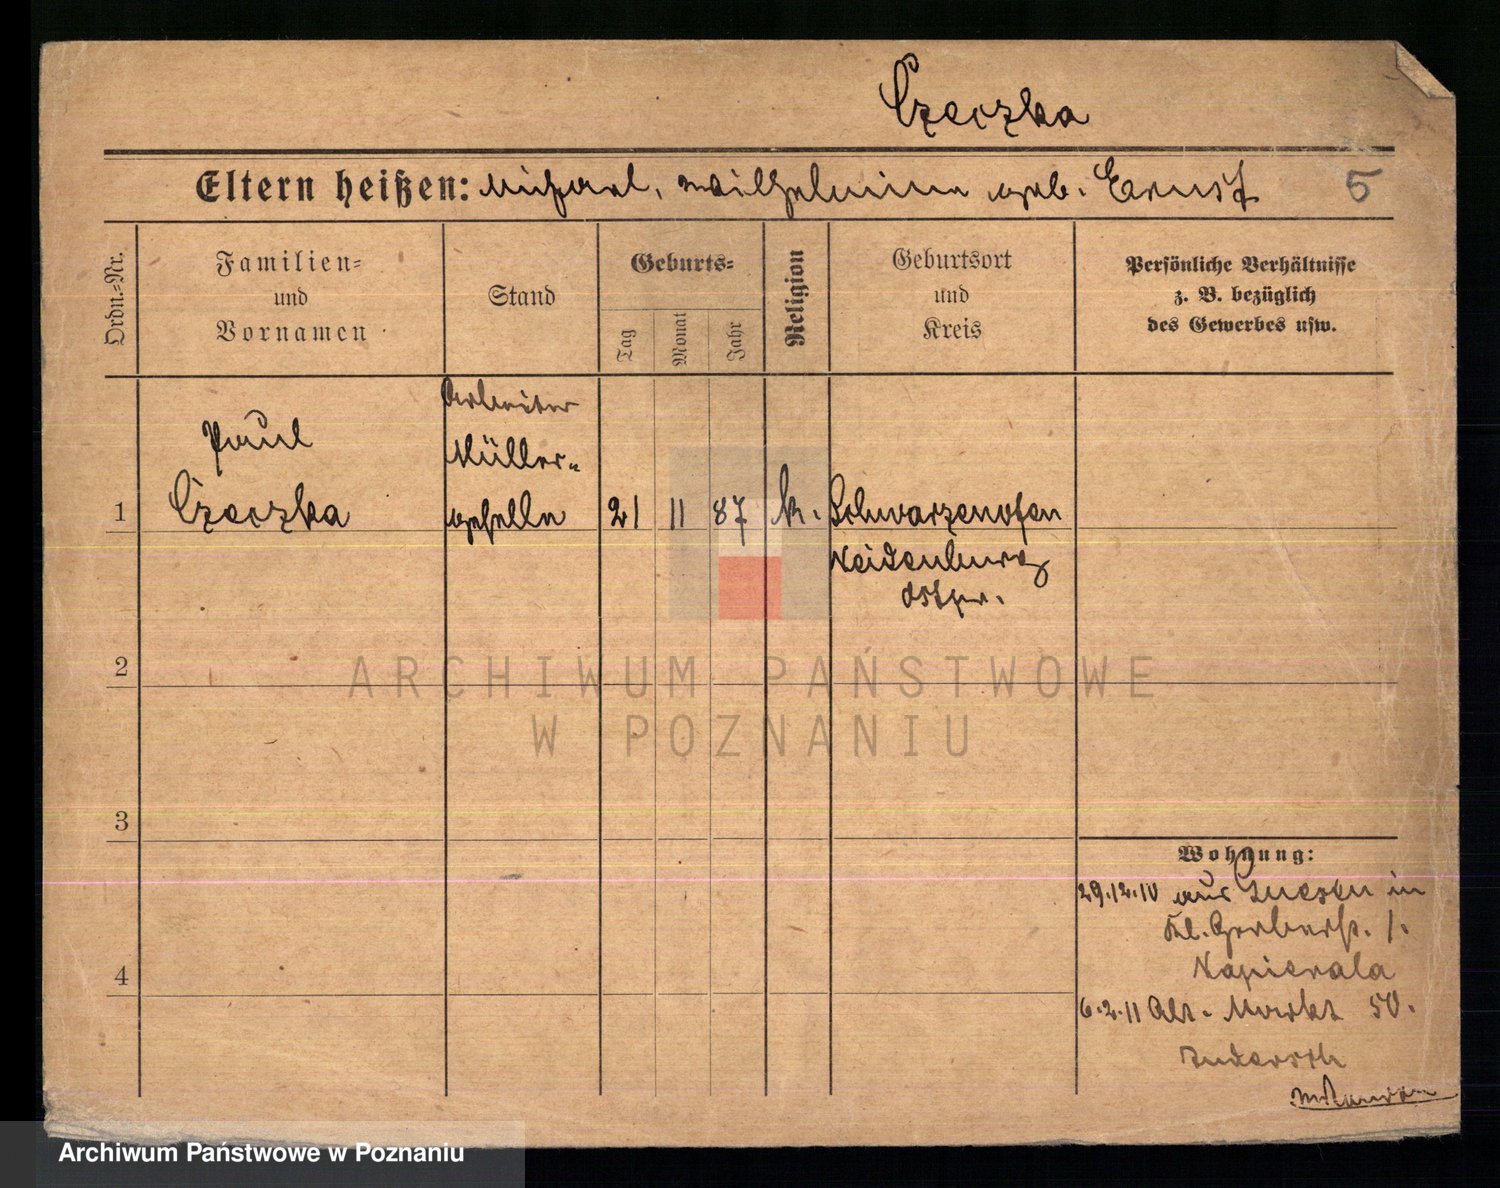 Czeczka
Eltern heißen: Michael, Wilhelmine geb. Ernst 5
Ordn.-Nr.
Familien-
und
Vornamen
Stand
Geburts-
Tag
Monat
Jahr
Religion
Geburtsort
und
Kreis
Persönliche Verhältnisse
z. B. bezüglich
des Gewerbes usw.
Arbeiter
Paul
Müller-
1 Czeczka geselle 21 11 87 k. Schwarzenofen
Neidenburg
Ostpr.
2
ARCHIWUM PAŃSTWOWE
W POZNANIU
3
Wohnung:
29.12.10 aus Gnesen in
Kl. Gerberstr. 1.
Napierala
4
6.2.11 Alt. Markt 50.
Archiwum Państwowe w Poznaniu